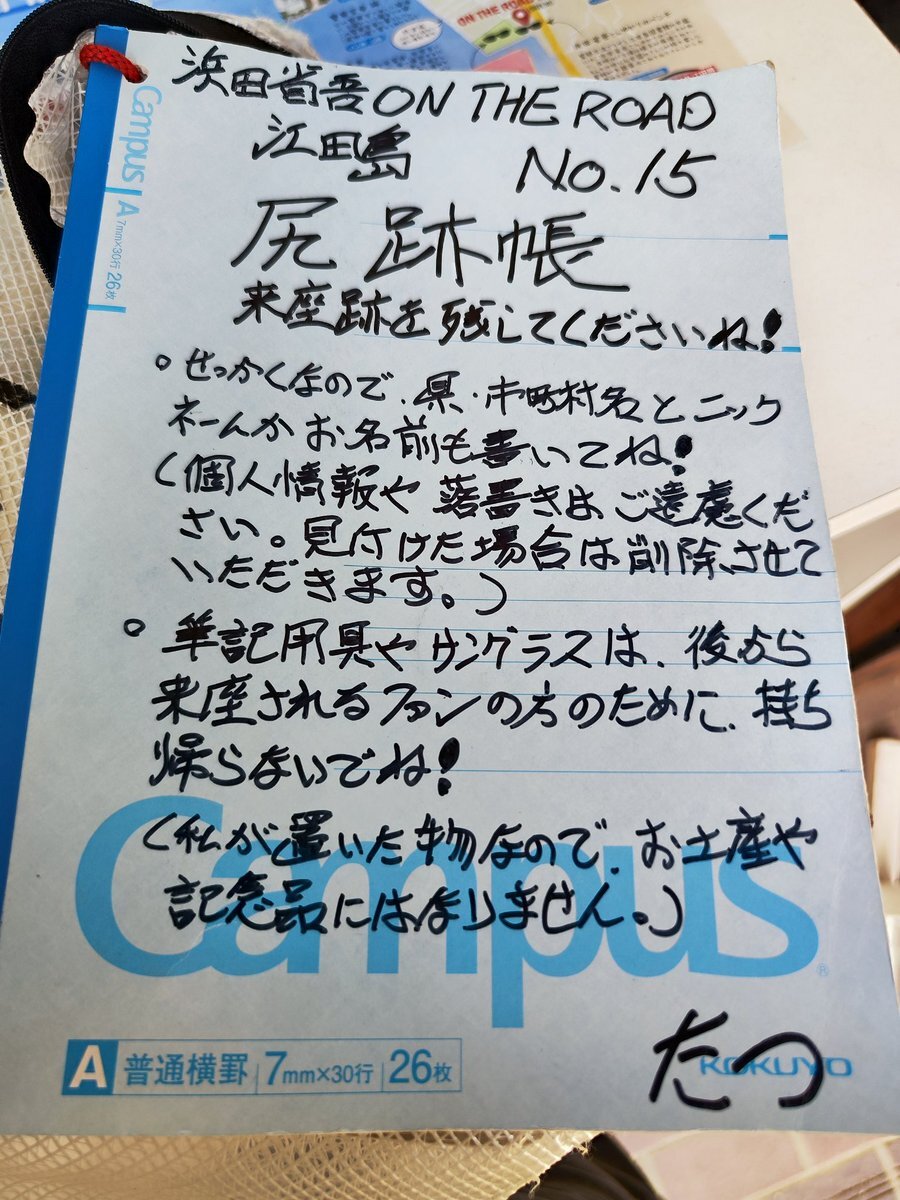 浜田省吾ON THE ROAD
江田島 No.15
尻跡帳
来座跡を残してくださいね!
。せっかくなので、県・市町村名とニック
ネームかお名前も書いてね!
(個人情報や落書きはご遠慮くだ
さい。見付けた場合は削除させて
いただきます。)
。筆記用具やサングラスは、後から
来座されるファンの方のために、持ち
帰らないでね!
(私が置いた物なので、お土産や
記念品にはなりません。)
たつ
Campus
A 普通横罫 7mm×30行 26枚
KOKUYO
Campus A 7mm×30行 26枚
ON THE ROAD